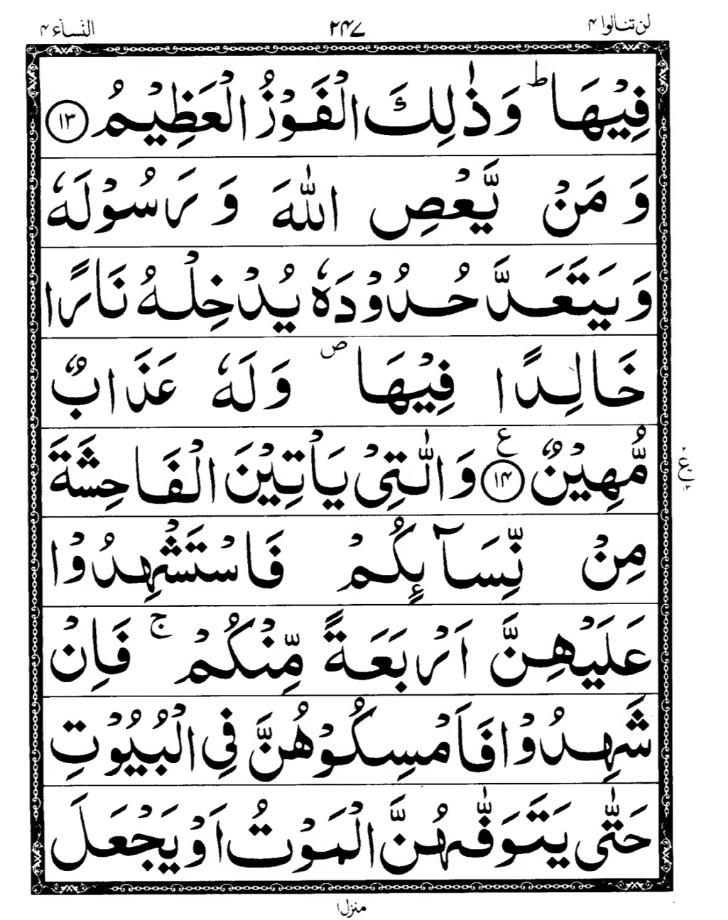 لن تنالوا ۴ ۲۴۷ النسآء ۴
فِيْهَا ؕ وَذٰلِكَ الْفَوْزُ الْعَظِيْمُ ۱۳
وَ مَنْ يَّعْصِ اللّٰهَ وَ رَسُوْلَهٗ
وَيَتَعَدَّ حُدُوْدَهٗ يُدْخِلْهُ نَارًا
خَالِدًا فِيْهَا ۪ وَلَهٗ عَذَابٌ
مُّهِيْنٌ ۱۴ ع وَالّٰتِيْ يَاْتِيْنَ الْفَاحِشَةَ
مِنْ نِّسَآىِٕكُمْ فَاسْتَشْهِدُوْا
عَلَيْهِنَّ اَرْبَعَةً مِّنْكُمْ ۚ فَاِنْ
شَهِدُوْا فَاَمْسِكُوْهُنَّ فِي الْبُيُوْتِ
حَتّٰى يَتَوَفّٰىهُنَّ الْمَوْتُ اَوْ يَجْعَلَ
منزل ۱